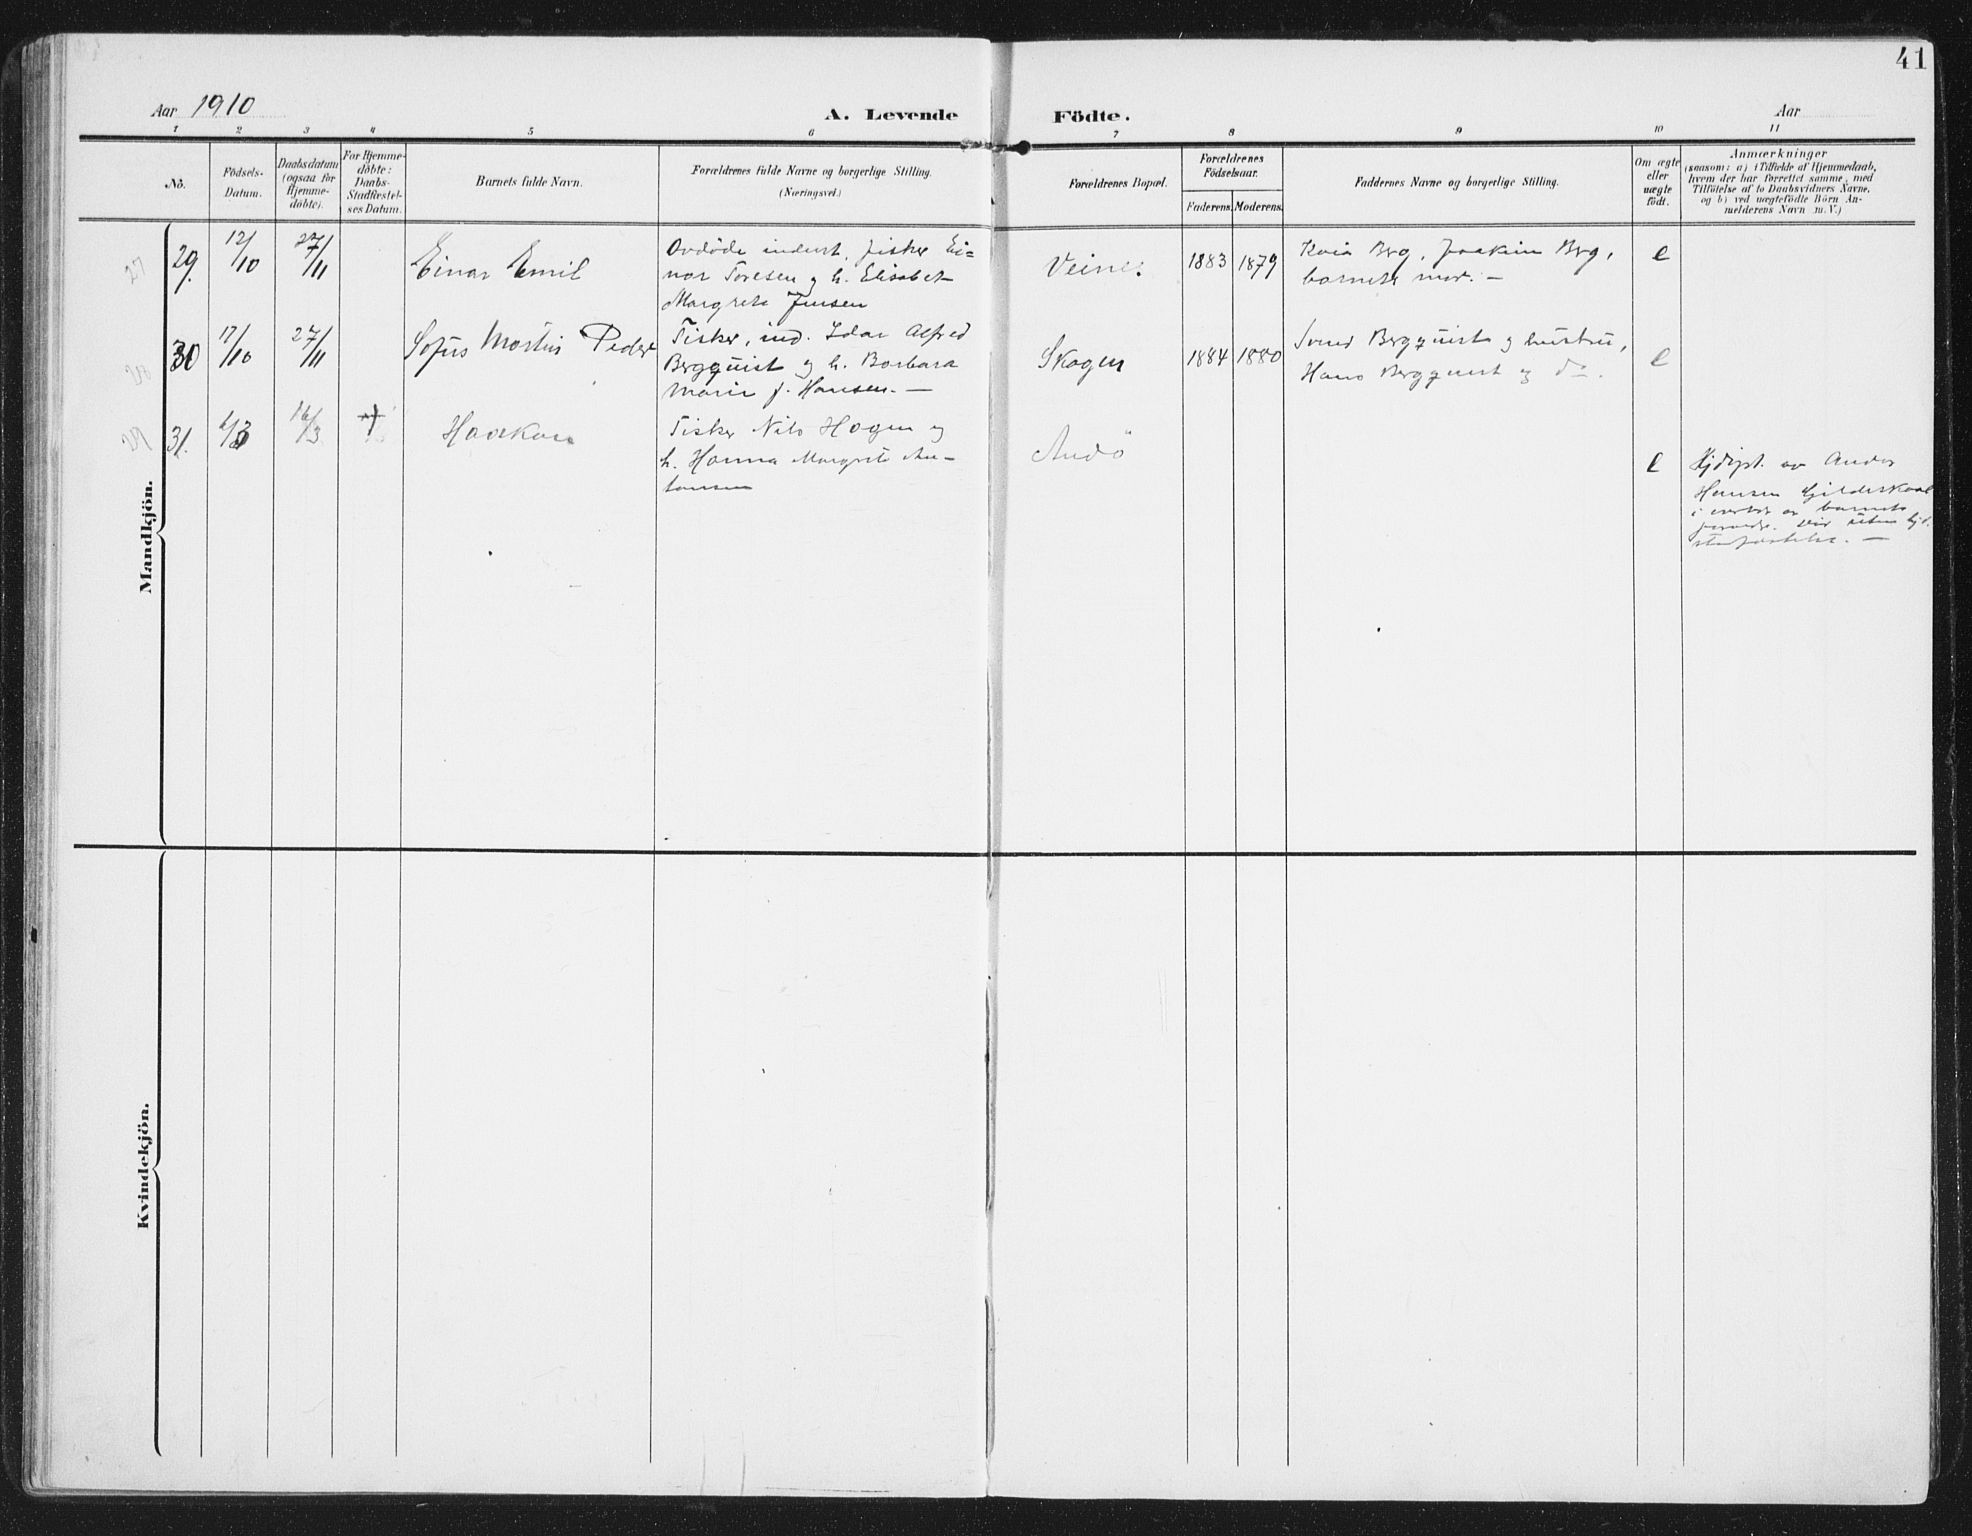 41
Aar 1910
A. Levende Födte.
Aar
1 2 3 4 5 6 7 8 9 10 11
No.
Födsels-
Datum.
Daabsdatum
(ogsaa for
Hjemme-
döbte).
For Hjemme-
döbte:
Daabs-
Stadfæstel-
ses Datum.
Barnets fulde Navn.
Forældrenes fulde Navne og borgerlige Stilling.
(Næringsvei.)
Forældrenes Bopæl.
Forældrenes
Födselsaar.
Faderens.
Moderens.
Faddernes Navne og borgerlige Stilling.
Om ægte
eller
uægte
födt.
Anmærkninger
(saasom: a) i Tilfælde af Hjemmedaab,
hvem der har forrettet samme, med
Tilföielse af to Daabsvidners Navne,
og b) ved uægtefödte Börn An-
melderens Navn m. V.)
Mandkjön.
27
29.
12/10
27/11
Einar Emil
Avdöde inderst, fisker Ei=
nar Toresen og h. Elisabet
Margrete Jensen
Veines
1883
1879
Berg, Joakim Berg,
barnets mor. —
e
28
30
17/10
27/11
Sofus Mortin Peder
Fisker, ind. Idar Alfred
Bergquist og h. Barbara
Marie f. Hansen. —
Skogen
1884
1880
Bergquist og hustru,
Hans Bergquist og do.
e
29
31.
6/3
16/3
Haakon
Fisker Nils Hagen og
h. Hanna Margrete An-
tonsen
Andö
e
Hjdöpt. av
Hansen Gildeskaal
i av barnets
uten hjd.
stadfæstelse. —
Kvindekjön.